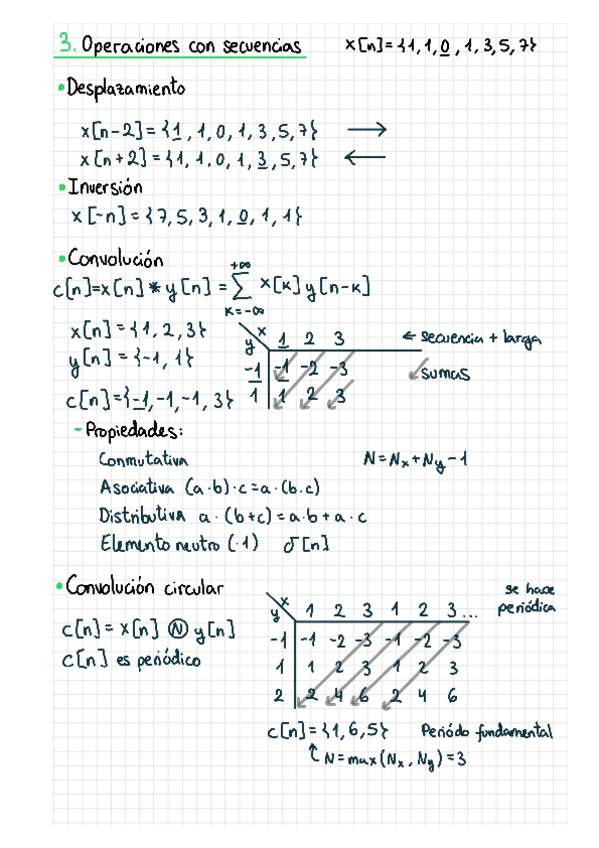 3. Operaciones con secuencias x[n]={1,1,0,1,3,5,7}
• Desplazamiento
x[n-2]={1,1,0,1,3,5,7} →
x[n+2]={1,1,0,1,3,5,7} ←
• Inversión
x[-n]={7,5,3,1,0,1,1}
• Convolución
c[n]=x[n]*y[n]=
+∞
∑ x[k]y[n-k]
k=-∞
x[n]={1,2,3}
y[n]={-1,1}
c[n]={-1,-1,-1,3}
y x 1 2 3 ← secuencia + larga
-1 -1 -2 -3 ↙ sumas
1 1 2 3
- Propiedades:
Conmutativa N=Nx+Ny-1
Asociativa (a·b)·c=a·(b.c)
Distributiva a·(b+c)=a·b+a·c
Elemento neutro (·1) δ[n]
• Convolución circular
c[n]=x[n] Ⓝ y[n]
c[n] es periódico
y x 1 2 3 1 2 3... se hace
periódica
-1 -1 -2 -3 -1 -2 -3
1 1 2 3 1 2 3
2 2 4 6 2 4 6
c[n]={1,6,5} Periódo fundamental
↑ N=max(Nx,Ny)=3